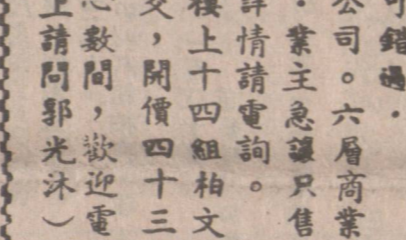 可錯過．
公司。六層商業
．業主急讓只售
詳情請電詢。
樓上十四組柏文
交，開價四十三
心數間，歡迎電
上請問郭光沐）